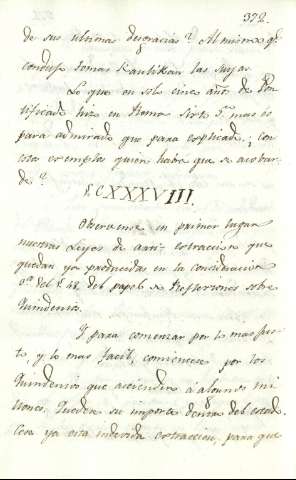 372.
de sus ultimas desgracias? Al mismo qe.
conduxe Tomas Kaulikan las suyas.
Lo que en solo cinco años de Pon-
tificado hizo en Roma Sixto 5.º mas es
para admirado que para explicado; con
estos exemplos quien habrá que se acobar-
de?
XXXVIII.
Observense en primer lugar
nuestras Leyes de anti-extraccion que
quedan ya producidas en la consideracion
del papel de Reflexiones sobre
Quindenios.
Y para comenzar por lo mas jus-
to, y lo mas facil, comiencese por los
Quindenios que ascienden à algunos mi-
llones. Quede su importe dentro del estado.
Cese ya esta indevida extraccion, para que